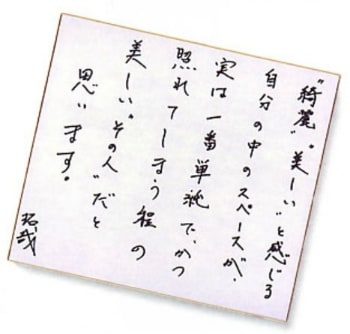 "綺麗"。美しい"と感じる
自分の中のスペースが、
実は一番単純で、かつ
照れてしまう程の
美しい。その人"だと
思います。
拓哉